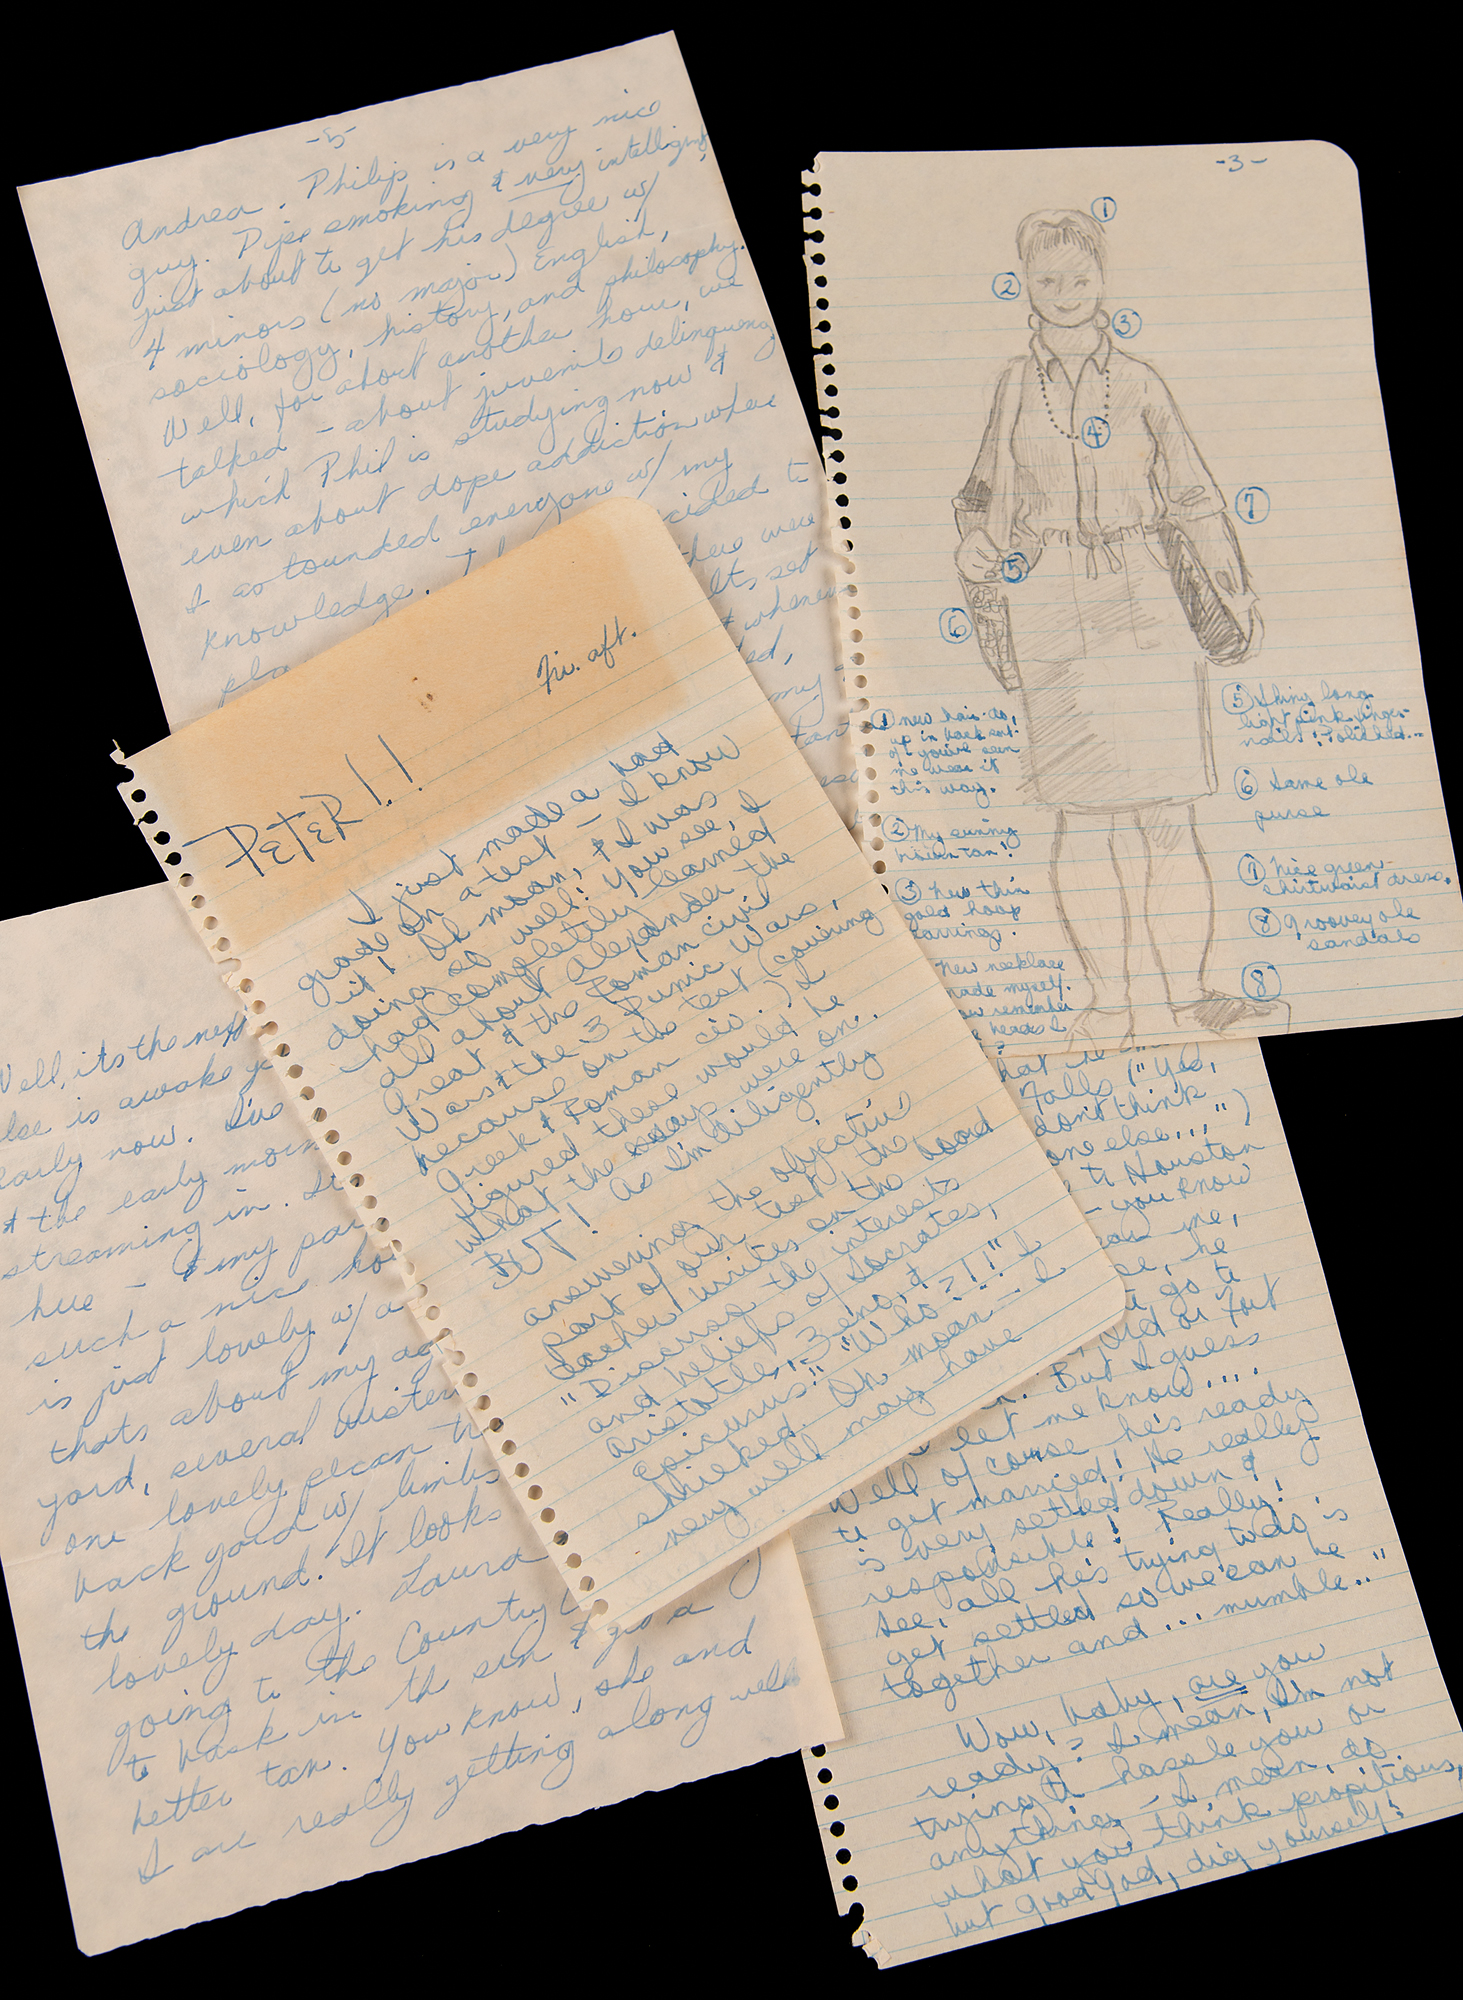 -5-
Andrea. Philip is a very nice
guy. Pipe smoking & very intelligent,
just about to get his degree w/
4 minors (no major) English,
sociology, history, and philosophy.
Well, for about another hour, we
talked - about juvenile delinquency
which Phil is studying now &
even about dope addiction where
I astounded everyone w/ my
knowledge.
cided to
there were
Its set
whenev
my
-3-
1
2
3
4
5
6
7
8
① new hair-do,
up in back sort
of you've seen
me wear it
this way.
② My sunny
brown tan!
③ New thin
gold hoop
earrings.
new necklace
made myself.
remember
beads I
?
⑤ Shiny long
light pink finger-
nails! Polished...
⑥ Same ole
purse
⑦ Nice green
shirtwaist dress.
⑧ Groovey ole
sandals
Fri. aft.
PETER!!
I just made a bad
grade on a test - I know
it! Oh moan, & I was
doing so well! You see, I
had completely learned
all about Alexander the
Great & the Roman Civil
Wars & the 3 Punic Wars,
because on the test (covering
Greek & Roman civ.) I
figured these would be
what the essay were on.
BUT! As I'm diligently
answering the objective
part of our test the
teacher writes on the board
"Discuss the interests
and beliefs of Socrates,
Aristotle, Zeno, &
Epicurus." "Who?!!" I
shrieked. Oh moan - I
very well may have
Well, its the next
else is awake ye
early now.
& the early morn
streaming in.
hue - & my par
such a nice ho
is just lovely w/ a
thats about my ag
yard, several wister
one lovely pecan tr
back yard w/ limbs
the ground. It looks
lovely day. Laura
going to the Country
to bask in the sun & get a
better tan. You know, she and
I are really getting along well
that he
Falls ("Yes,
don't think
one else...")
to Houston
- you know
me,
he
go to
or Fort
But I guess
let me know....
Well of course he's ready
to get married! He really
is very settled down &
responsible! Really!
See, all he's trying to do is
get settled so we can be
together and... mumble.."
Wow, baby, are you
ready? I mean, I'm not
trying to hassle you or
anything - I mean, do
what you think propitious,
but good god, dig yourself!